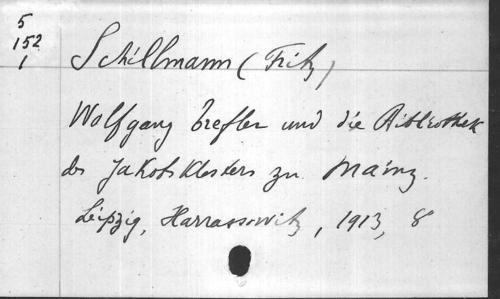 5
152
1
Schillmann (Fritz)
Wolfgang Trefler und die Bibliothek
des Jakobsklosters zu Mainz.
Leipzig, Harrassowitz, 1913, 8